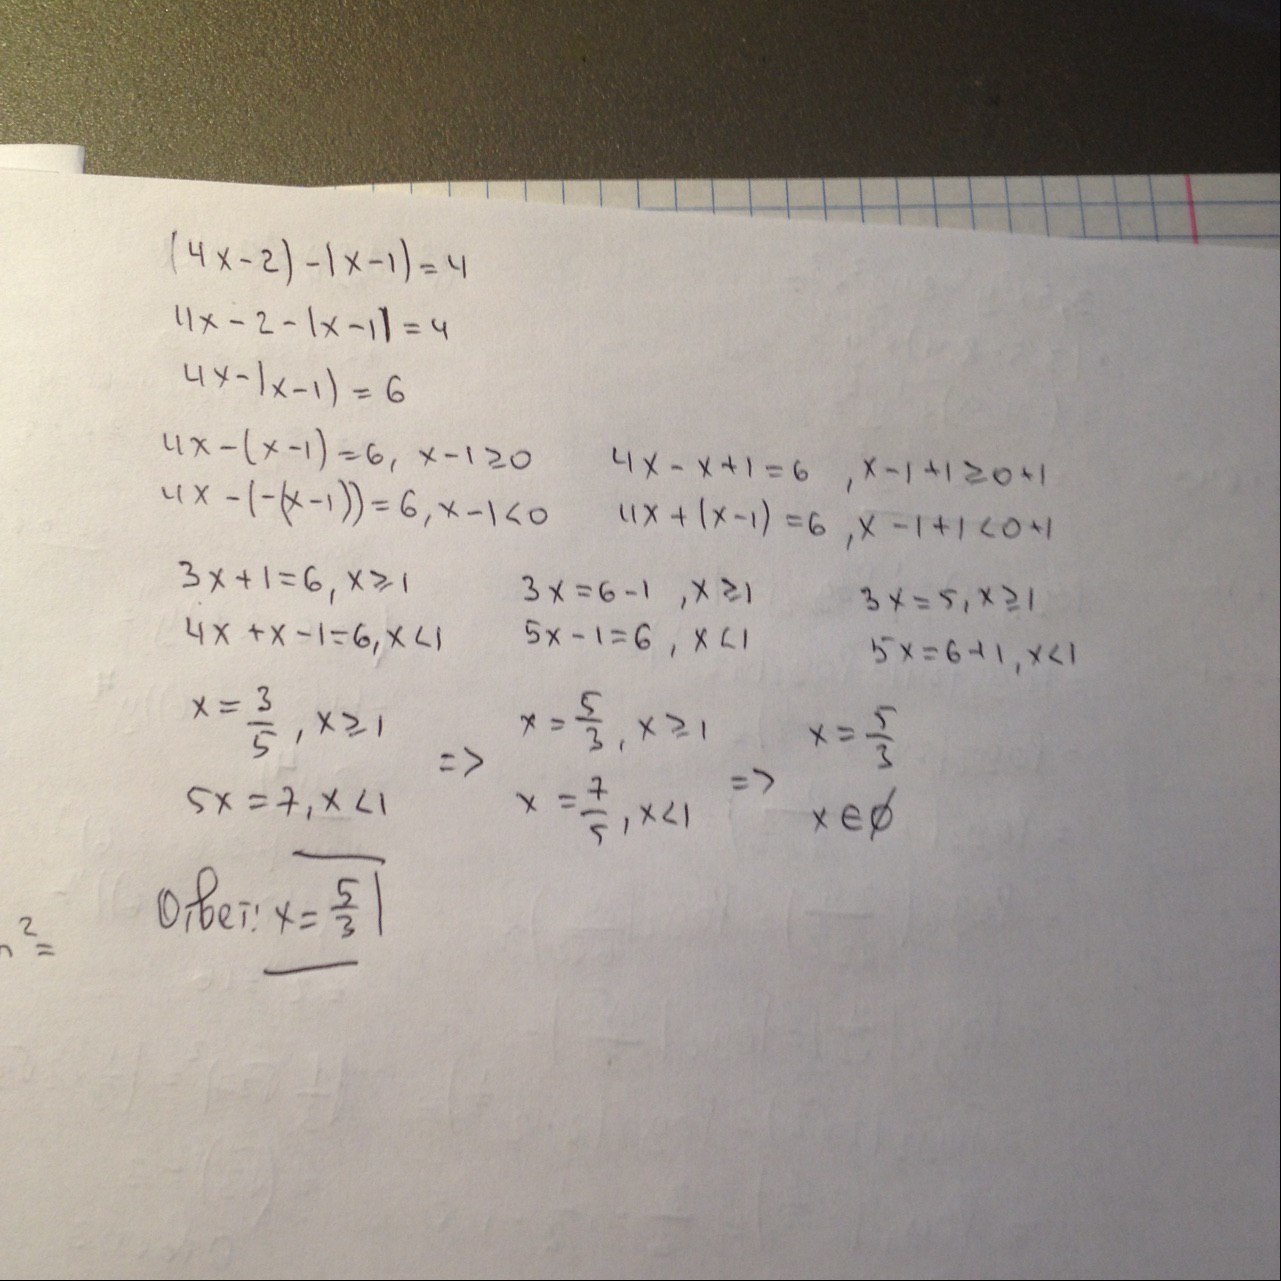 (4x-2)-|x-1)=4
4x-2-|x-1|=4
4x-|x-1)=6
4x-(x-1)=6, x-1≥0 4x-x+1=6 ,x-1+1≥0+1
4x-(-(x-1))=6,x-1<0 4x+(x-1)=6 ,x-1+1<0+1
3x+1=6,x≥1 3x=6-1 ,x≥1 3x=5,x≥1
4x+x-1=6,x<1 5x-1=6 , x<1 5x=6+1,x<1
x=3/5 ,x≥1 => x=5/3, x≥1 => x=5/3
5x=7,x<1 x=7/5 ,x<1 x∈∅
Ответ: x=5/3
2=